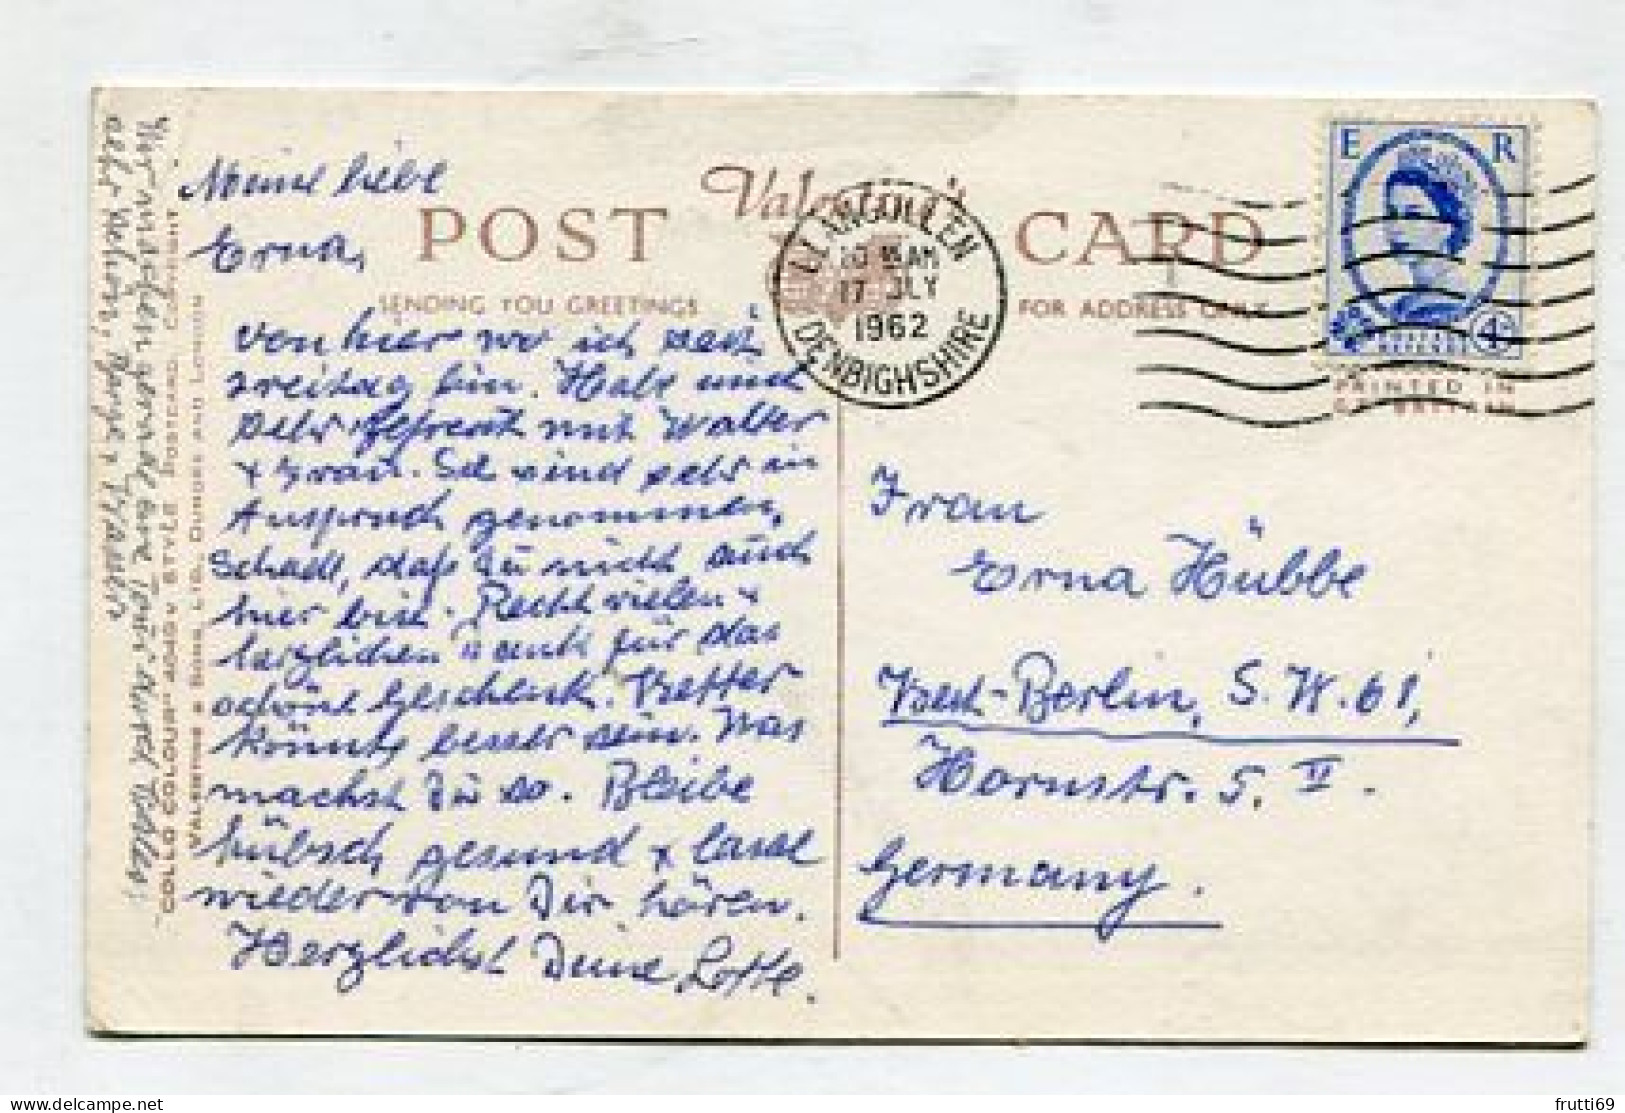 Meine liebe
Erna,
von hier wo ich seit
Freitag bin. Habe und
sehr Gespräch mit Walter
+ Frau. Sie sind sehr in
Anspruch genommen,
Schade, daß Du nicht auch
hier bist. Recht vielen +
herzlichen Dank für das
schöne Geschenk. Wetter
könnte besser sein. Was
machst Du so. Bleibe
hübsch gesund + lasse
wieder von Dir hören.
Herzlichst Deine Lotte.
Wir wandern gerade eine Tour durch Wales,
sehr schön, Berge +
COLLO COLOUR" AGNSY STYLE POSTCARD, COPYRIGHT
VALENTINE & SONS, LTD., DUNDEE AND LONDON
Valentine's
POST CARD
SENDING YOU GREETINGS
FOR ADDRESS ONLY
LLANGOLLEN
10 15 AM
17 JLY
1962
DENBIGHSHIRE
E R
4D
PRINTED IN
GT BRITAIN
Frau
Erna Hübbe
West-Berlin, S.W. 61,
Hornstr. 5. II.
Germany.
frutti69